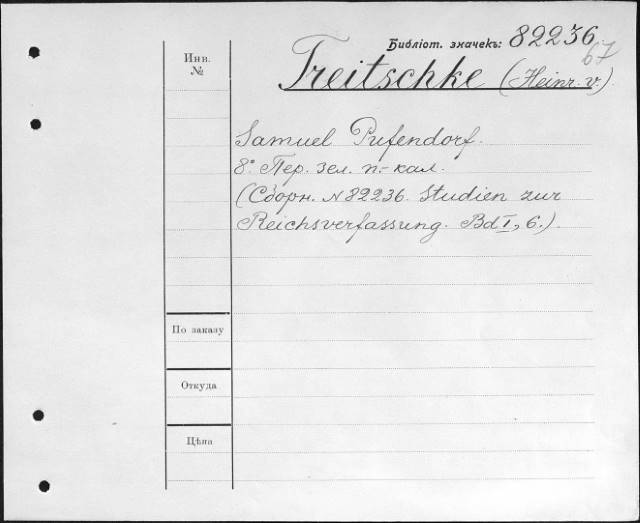 Библіот. значекъ: 82236.
67
Инв.
№
Treitschke (Heinr. v.)
Samuel Pufendorf.
8° Пер. зел. п.-кал.
(Сборн. N 82236. Studien zur
Reichsverfassung. Bd I, 6.)
По заказу
Откуда
Цѣна